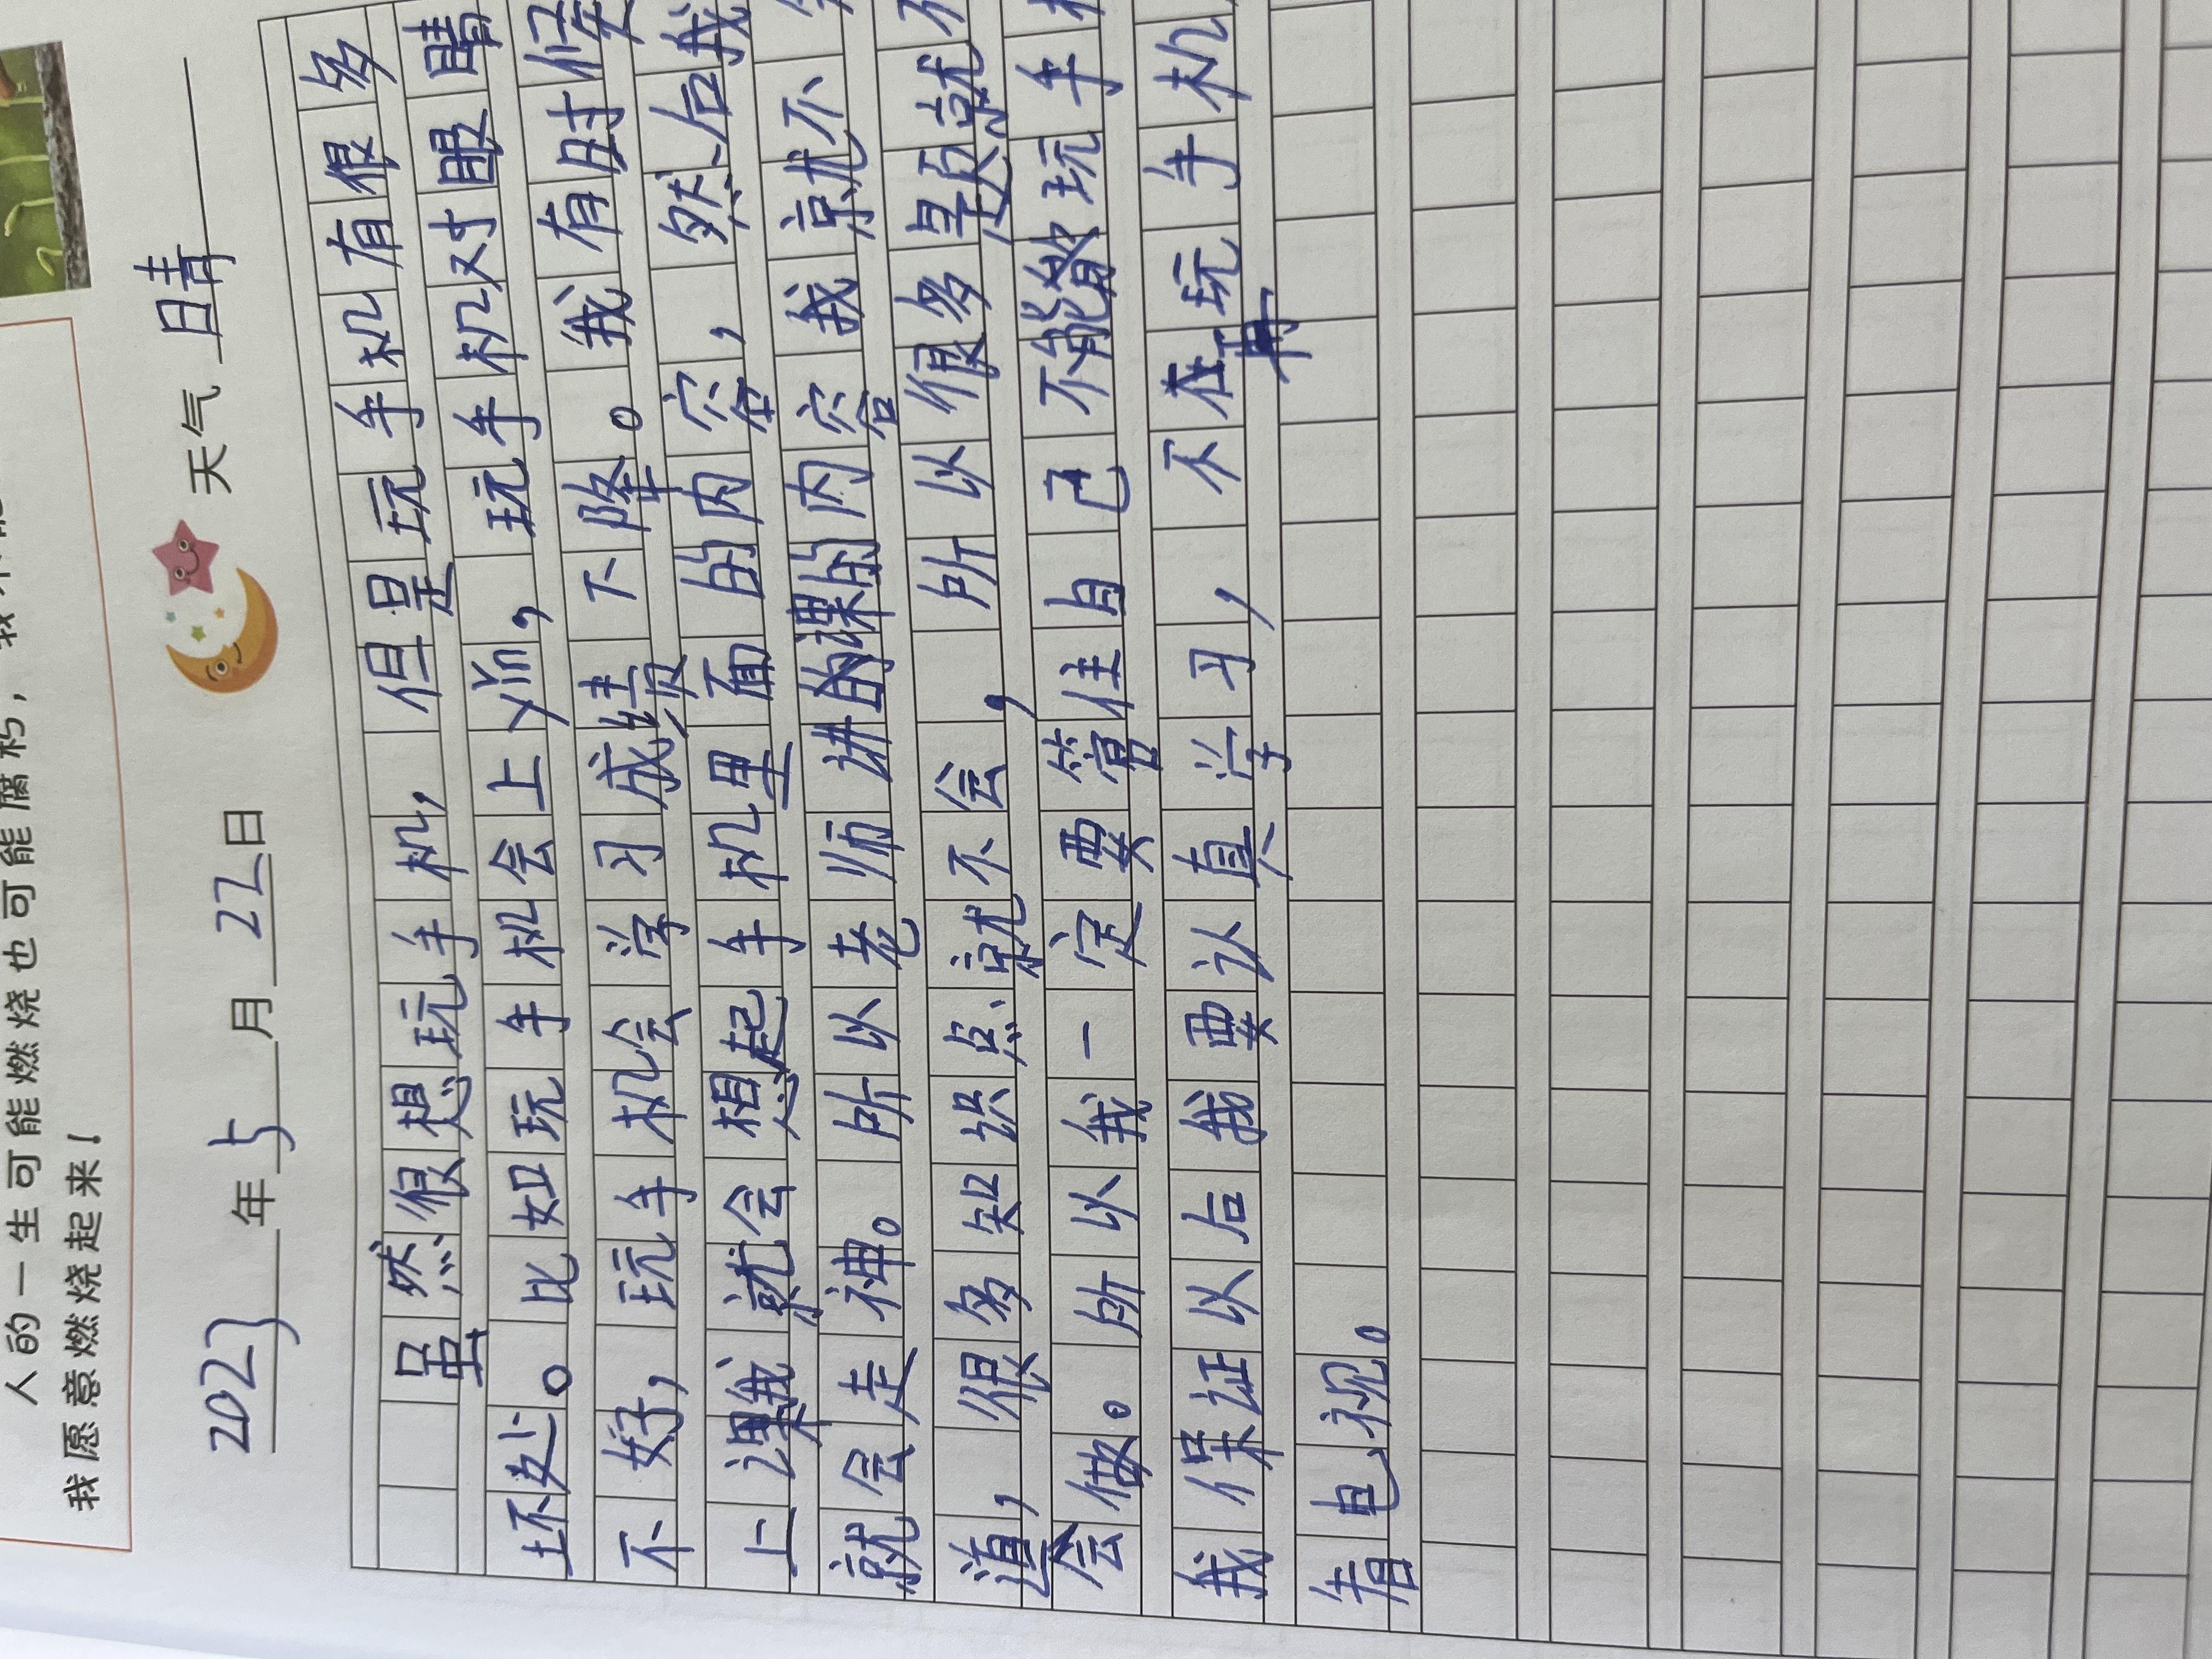 人的一生可能燃烧也可能腐朽，我不能
我愿意燃烧起来！
2023年5月22日 天气 晴
虽然很想玩手机，但是玩手机有很多
坏处。比如玩手机会上yǐn，玩手机对眼睛
不好，玩手机会学习成绩下降。我有时候
上课我就会想起手机里面的内容，然后我
就会走神。所以老师讲的课的内容我就不
道，很多知识点就不会，所以很多题就不
会做。所以我一定要管住自己不能做玩手
我保证以后我要认真学习，不再玩手机
看电视。